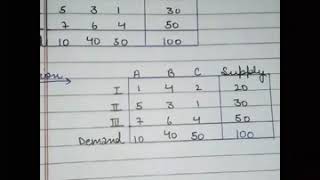 5 3 1 30
7 6 4 50
10 40 50 100
A B C Supply
I 1 4 2 20
II 5 3 1 30
III 7 6 4 50
Demand 10 40 50 100